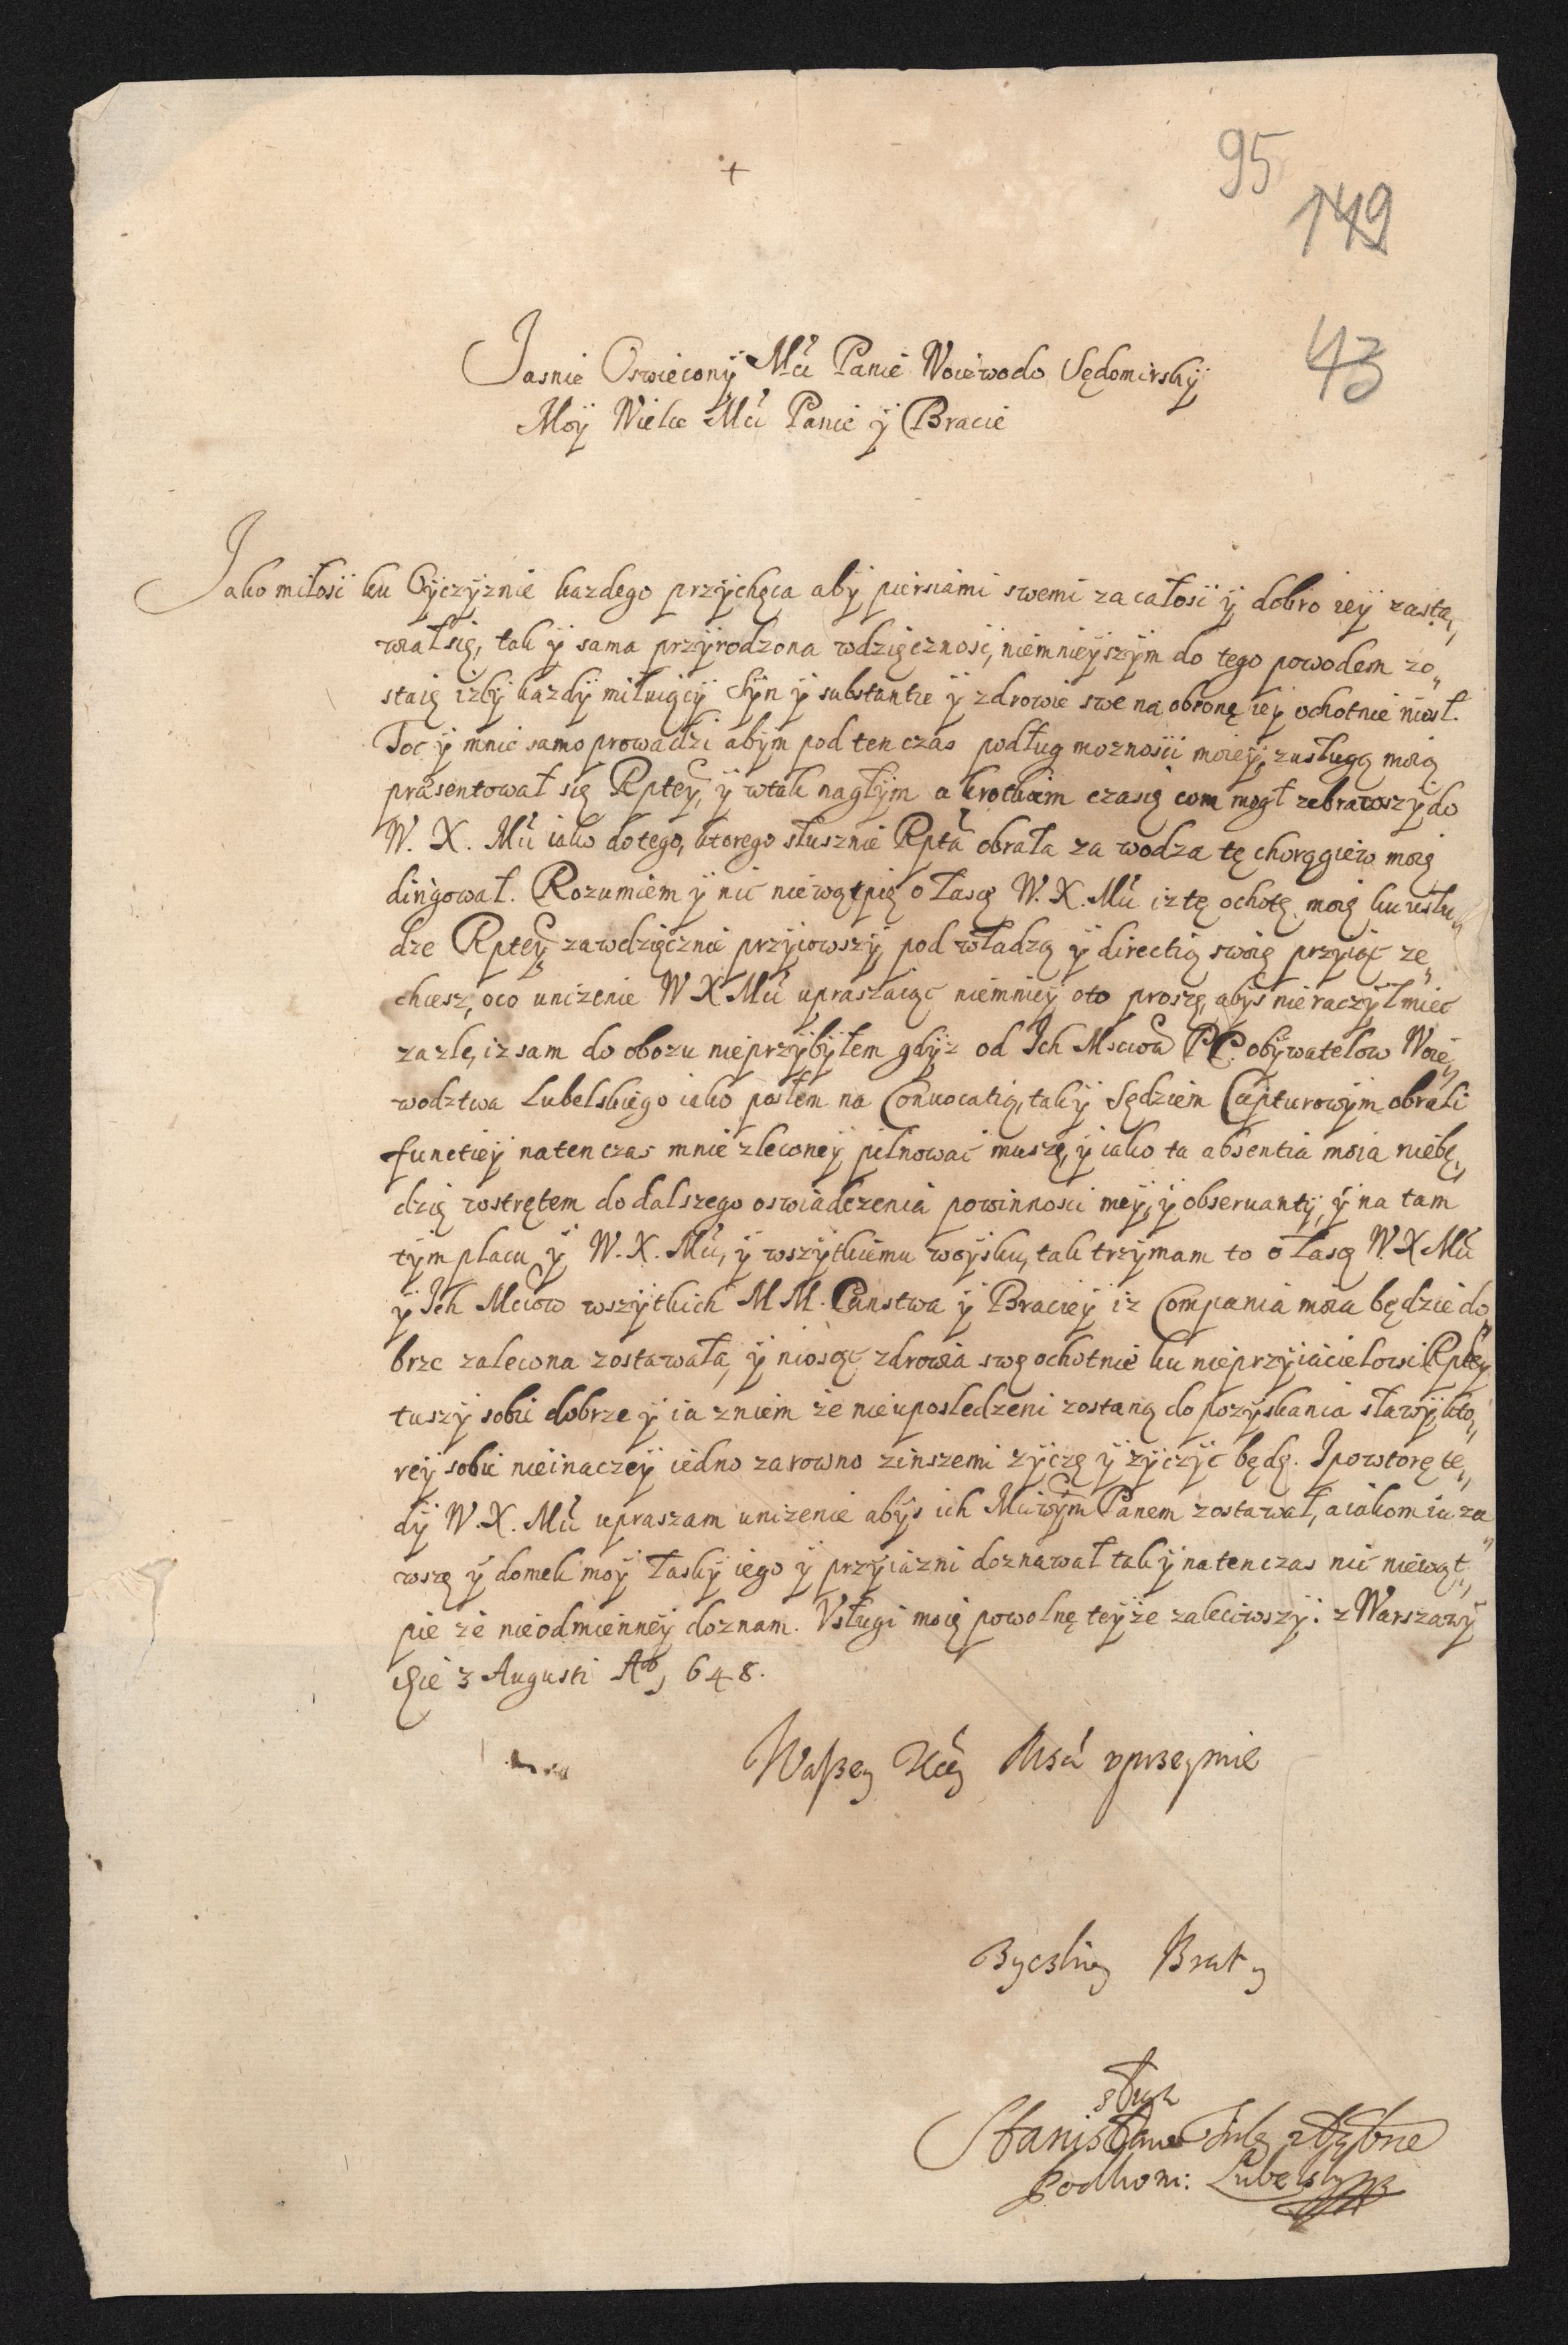 +
95
149
43
Jasnie Oswiecony Mći Panie Woiewodo Sędomirsky
Moy Wielce Mći Panie y Bracie
Jako miłość ku Oyczyznie kazdego przychęca aby piersiami swemi za całość y dobro iey zastę„
wiał się, tak y sama przyrodzona wdzięczność, niemnieyszym do tego powodem zo„
staię izby kazdy miłuiący Syn y substantie y zdrowie swe na obronę iey ochotnie niosł.
Toć y mnie samo prowadzi abym pod ten czas podług moznośći moiey, zusługą moią
præsentował się Rptey, y wtak nagłym a krotkim czasię com mogł zebrawszy do
W. X. Mći iako do tego, ktorego słusznie Rpta obrała za wodza tę chorągiew moię
dirigował. Rozumiem y nic niewątpię o łascę W. X. Mći iz tę ochotę moię ku usłu„
dze Rptey zawdzięcznie przyiowszy pod władzą y directią swoię przyiąc ze„
chcesz, oco unizenie W X Mći upraszaiąc niemniey oto proszę, abyś nie raczył mieć
zazle, iz sam do obozu nieprzybyłem gdyz od Ich Msciow PP. obywatelow Woie„
wodztwa Lubelskiego iako posłem na Conuocatią, tak y Sędziem Capturowym obrali
functiey natenczas mnie zleconey pilnować muszę, y iako ta absentia moia niebę„
dzię wstrętem do dalszego oswiadczenia powinnosci mey, y obseruanty, y na tam
tym placu y W. X. Mći, y wszytkiemu woysku, tak trzymam to o łasce W. X Mći
y Ich Mciow wszytkich M M. Panstwa y Braciey iz Compania moia będzie do„
brze zalecona zostawała, y niosąc zdrowia swę ochotnie ku nieprzyiacielowi Rptey
tuszy sobie dobrze y ia zniem że nieuposledzeni zostaną do pozyskania sławy kto„
rey sobie nieinaczey iedno zarowno zinszemi zyczę y zyczyc będę. Ipowtorę te„
dy W. X. Mći upraszam unizenie abyś ich Mciwym Panem zostawał, a iakom ia za„
wszę y domek moy łasky iego y przyiazni doznawał tak y natenczas nic niewąt„
pie że nieodmienney doznam. Vsługi moię powolnę teyże zaleciwszy. z Warszawy
die 3 Augusti Ao, 648.
Waszey Xcey Msći vprzeymie
Zyczliwy Brat y
sługa
Stanisław
Podkom: Lubelsky